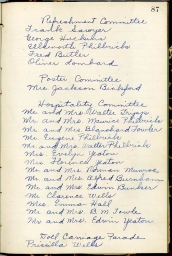 87
Refreshment Committee
Frank Sawyer
George Huckins
Ellsworth Philbrick
Fred Butler
Oliver Lombard
Poster Committee
Mrs Jackson Bickford
Hospitality Committee
Mr and Mrs Walter
Mr. and Mrs. Maurice Philbrick
Mr and Mrs Blanchard Fowler
Mr Eugene Philbrick
Mr and Mrs Walter Philbrick
Mrs. Evelyn Yeaton
Mrs Florence Yeaton
Mr and Mrs Norman Munroe
Mr and Mrs Alfred Burnham
Mr and Mrs Edwin Bunker
Mr Clarence Wells
Mrs. Emma Hall
Mr and Mrs B. M. Towle
Mr and Mrs. Edwin Yeaton
Doll Carriage Parade
Priscilla Wells